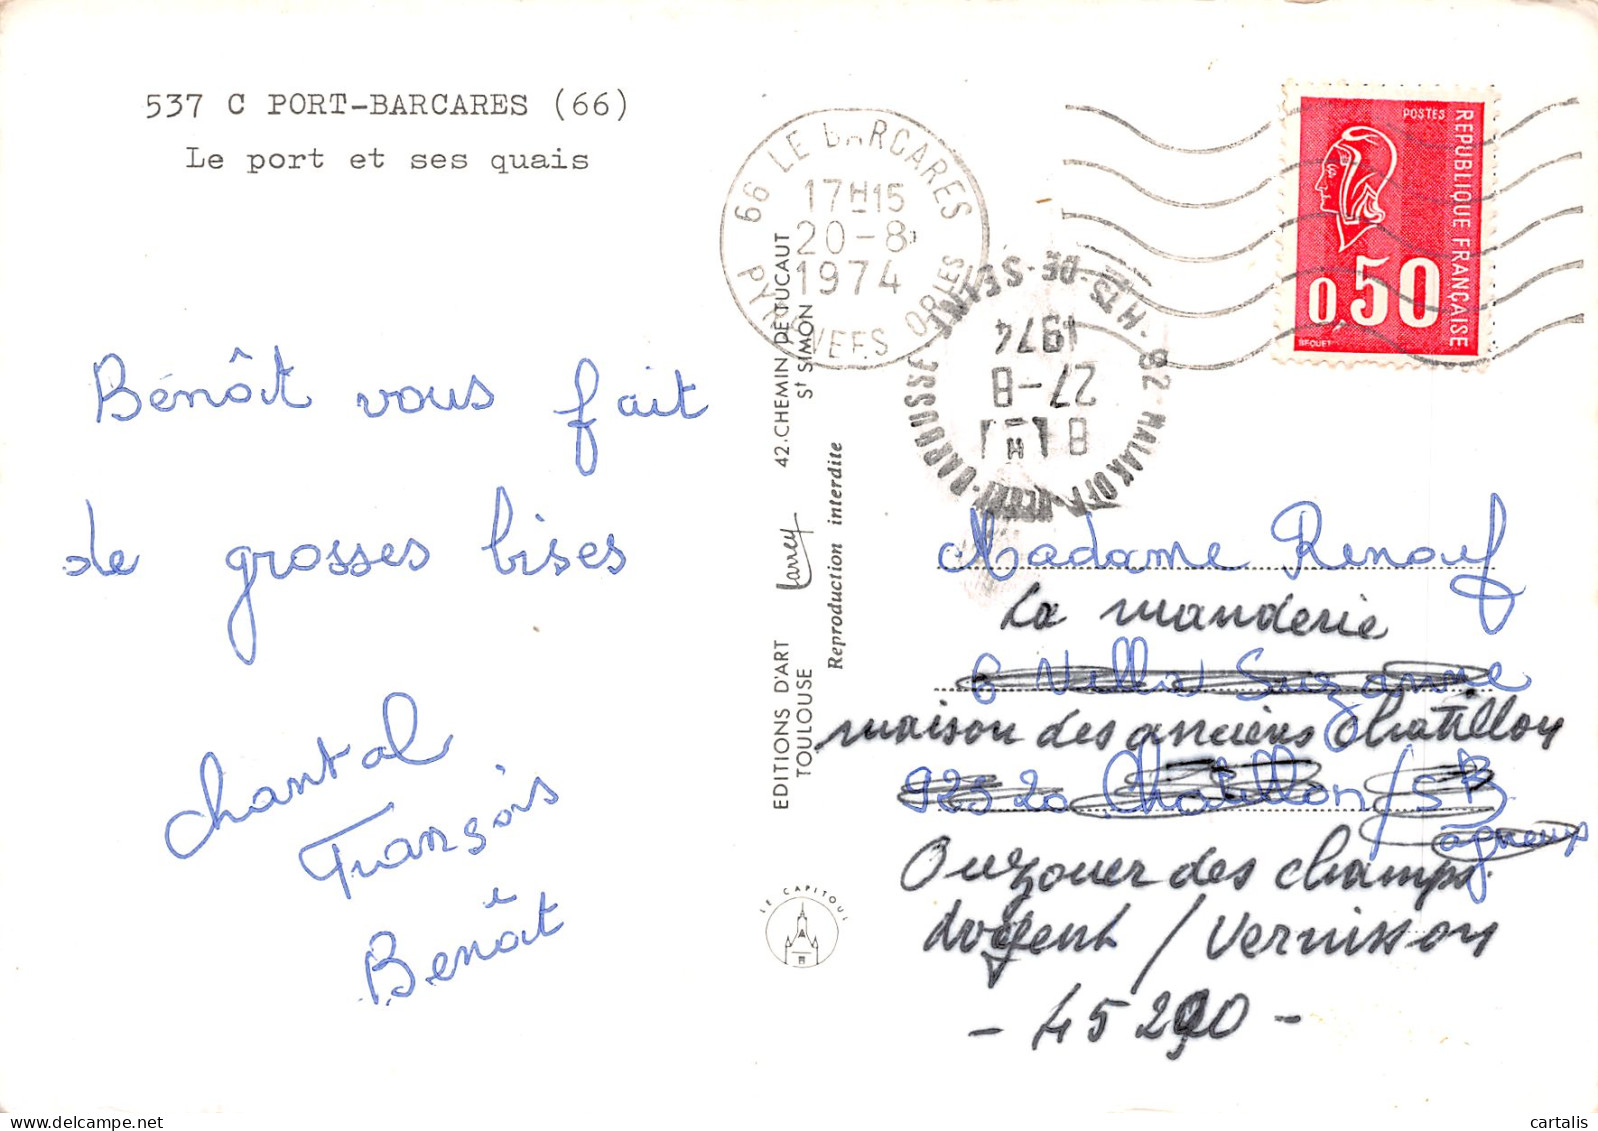 537 C PORT-BARCARES (66)
Le port et ses quais
Bénoît vous fait
de grosses bises
Chantal
François
Benoît
EDITIONS D'ART
TOULOUSE
Larrey
42.CHEMIN DE TUCAUT
St SIMON
Reproduction interdite
LE CAPITOUL
66 LE BARCARES
17H15
20-8
1974
PYRENEES ORLES
92 MALAKOFF
BARBUSSE
HTS-DE-SEINE
27-8
1974
POSTES
REPUBLIQUE FRANÇAISE
0,50
BEQUET
Madame Renouf
La manderie
6 Villa Suzanne
maison des anciens Chatillon
92320 Chatillon /s Bagneux
Ouzouer des champs
Nogent / Vernisson
- 45290 -
cartalis